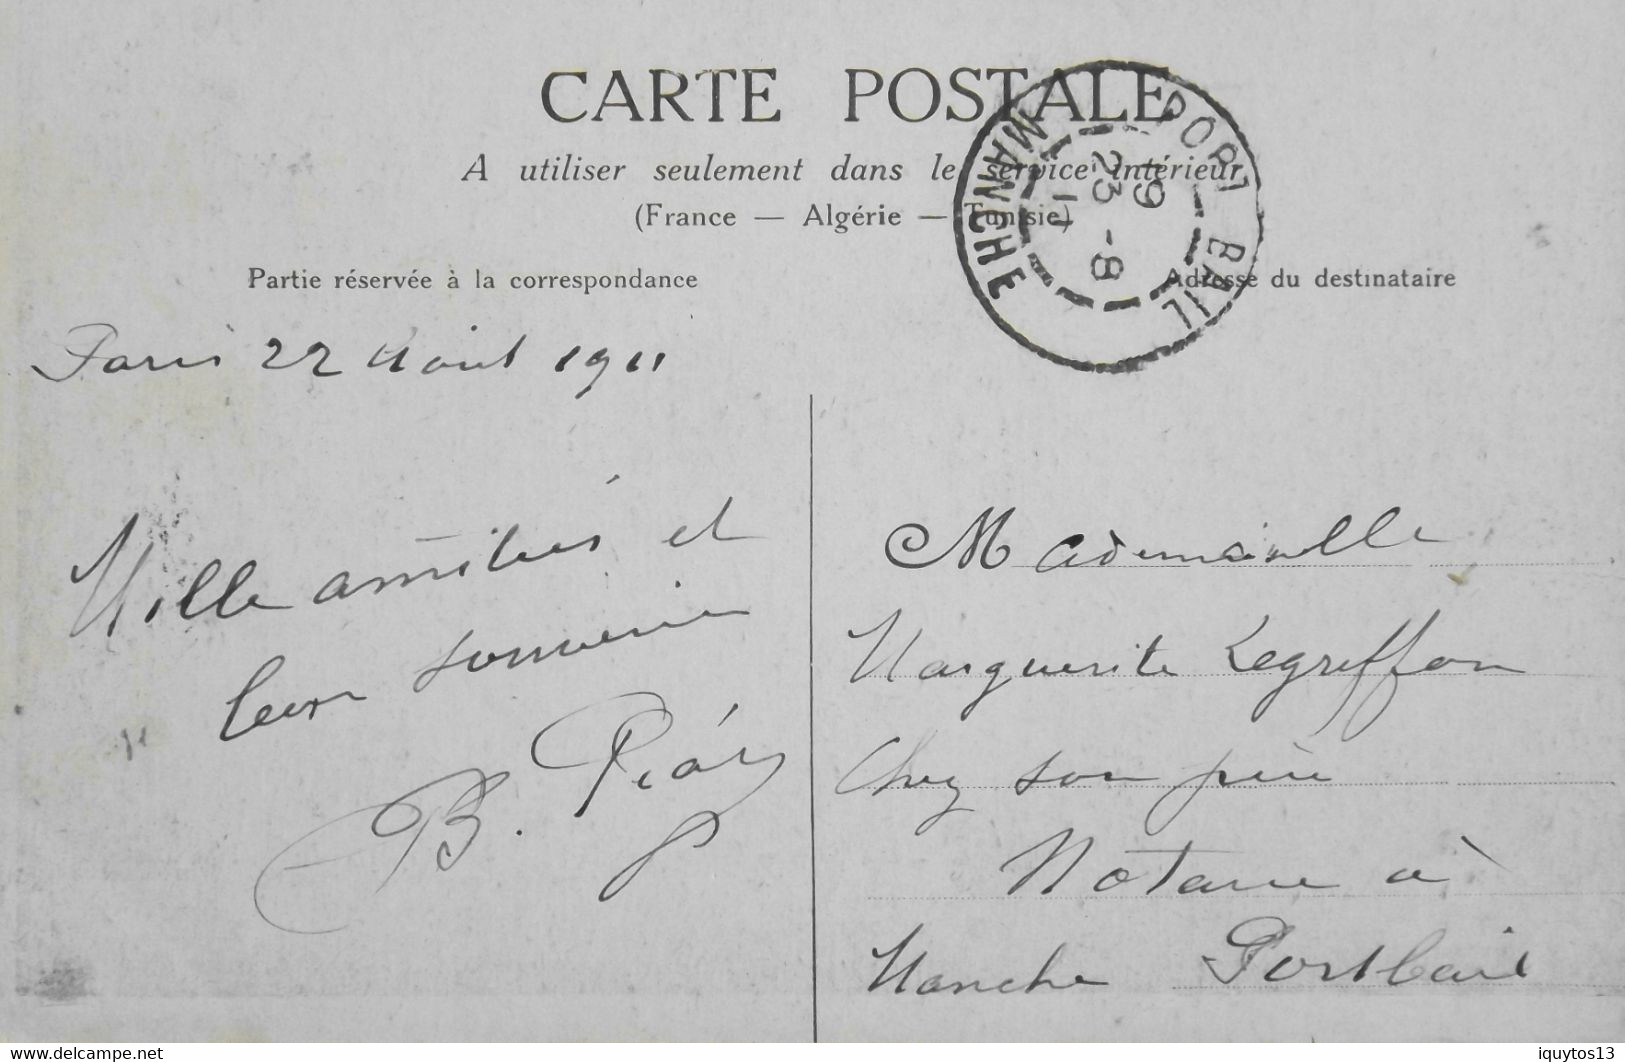 CARTE POSTALE
A utiliser seulement dans le service intérieur
(France — Algérie — Tunisie)
Partie réservée à la correspondance
Adresse du destinataire
PORT BAIL
19
23 -8
11
MANCHE
Paris 22 Août 1911
Mille amitiés et
bon souvenir
B.
Mademoiselle
Marguerite Legreffon
Chez son père
Notaire à
Manche Portbail
www.delcampe.net
iquytos13